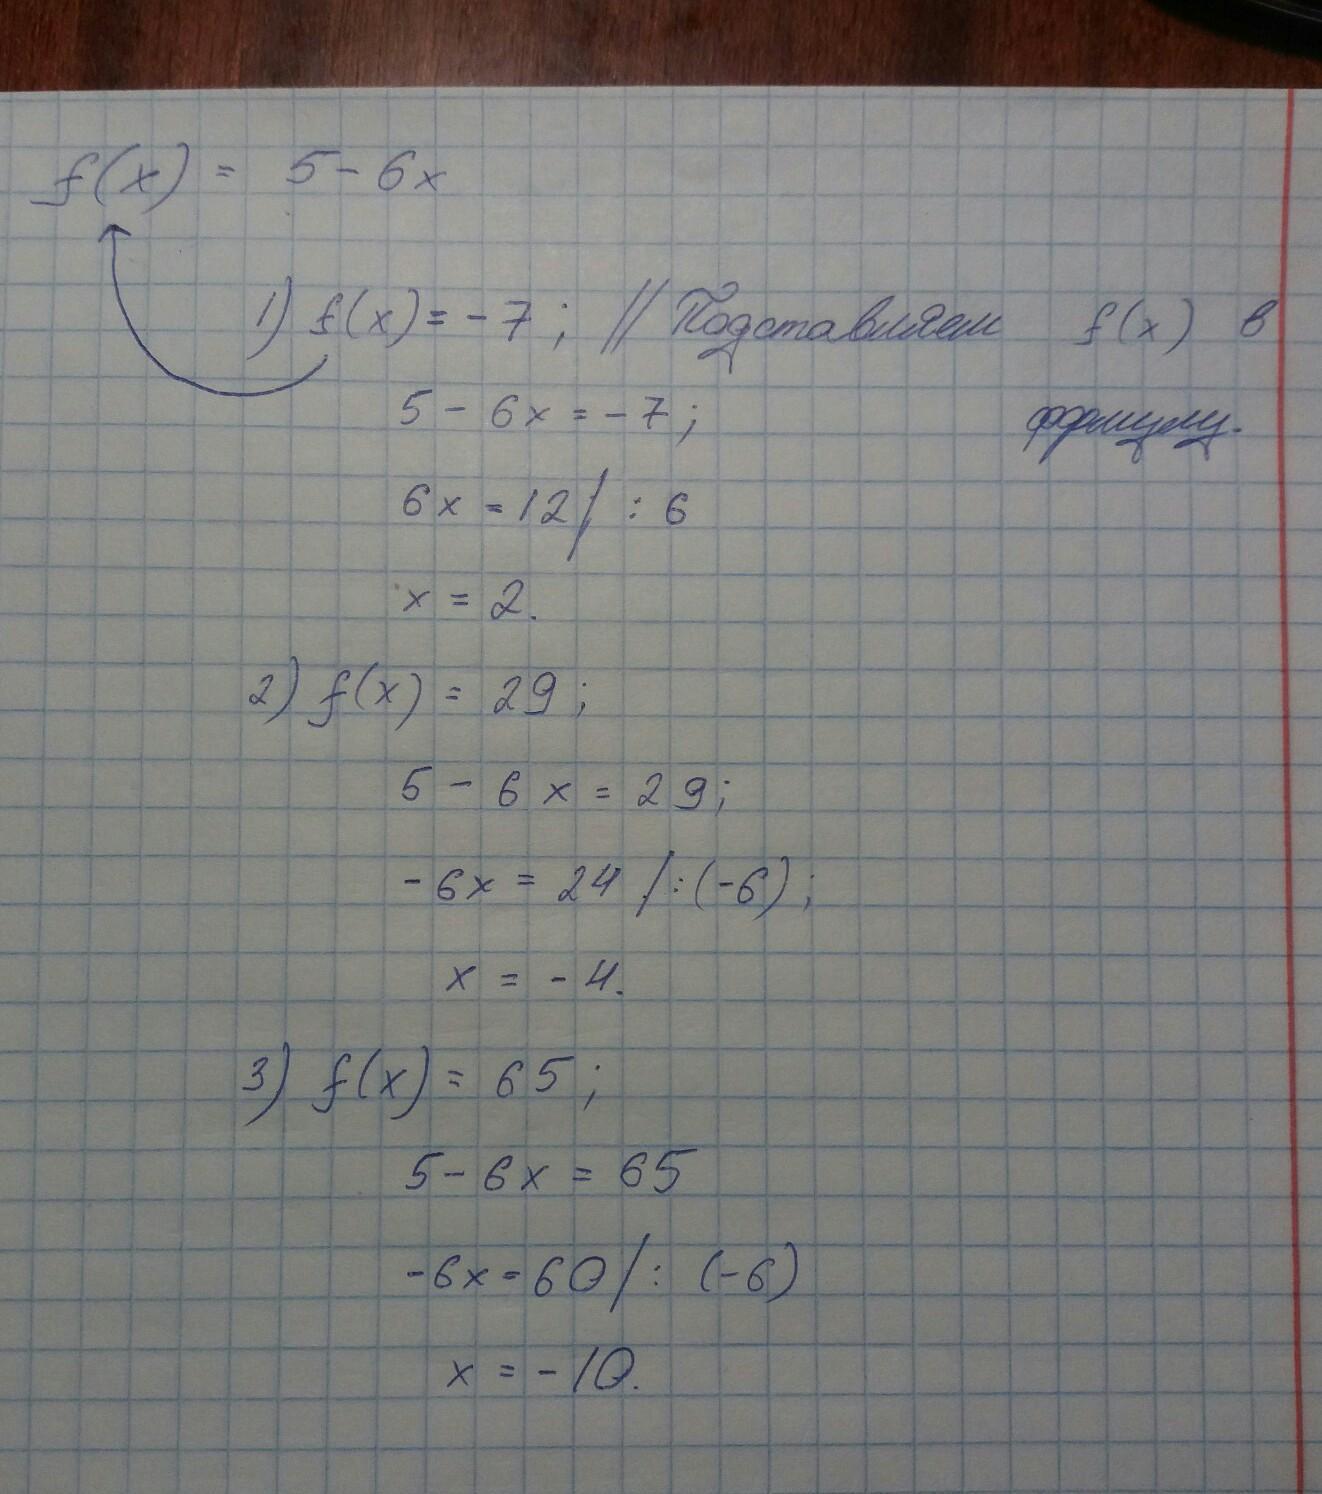 f(x) = 5 - 6x
1) f(x) = -7; // Подставляем f(x) в
5 - 6x = -7; формулу.
6x = 12 / : 6
x = 2.
2) f(x) = 29;
5 - 6x = 29;
-6x = 24 / : (-6);
x = -4.
3) f(x) = 65;
5 - 6x = 65
-6x = 60 / : (-6)
x = -10.